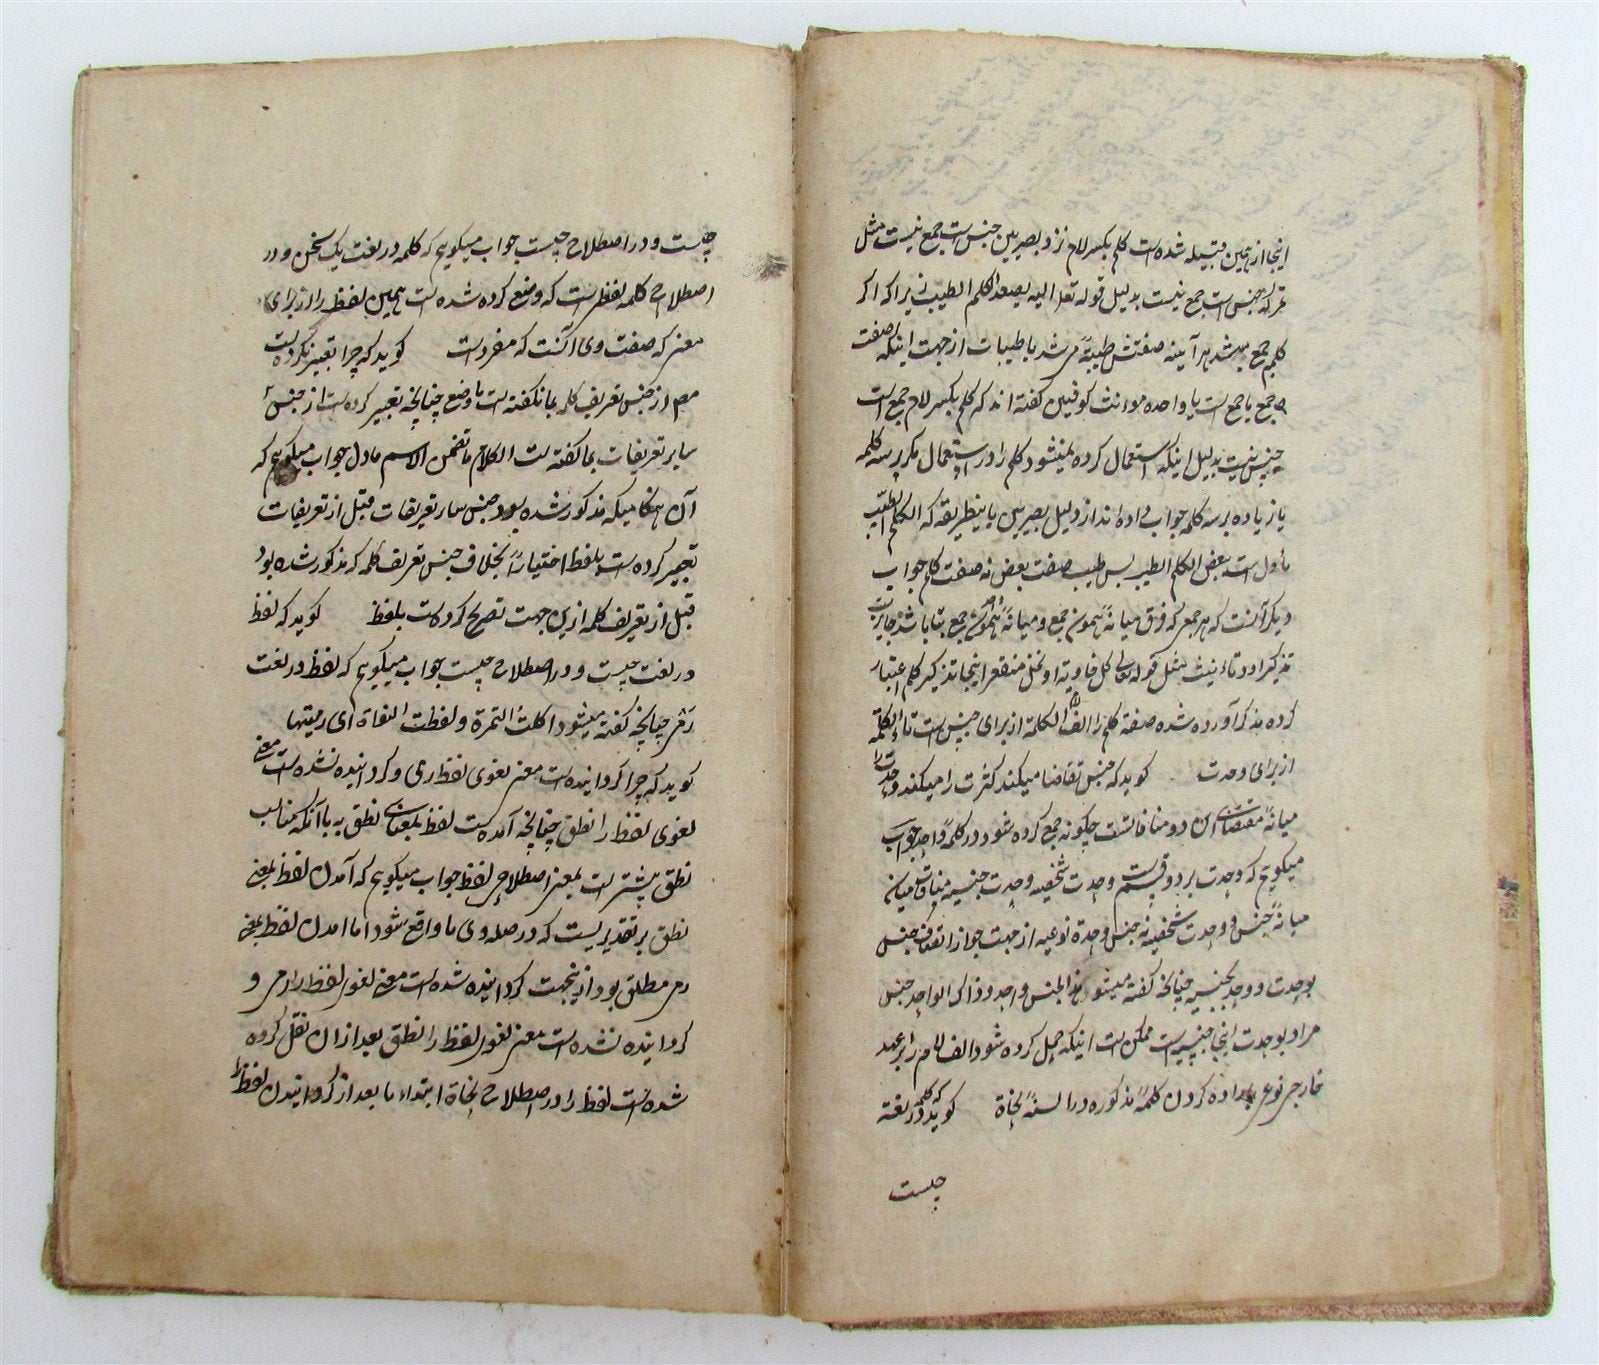 اینجا از همین قبیله شده است کلم بکسر لام نزد بصریین جنس است جمع نیست مثل
تمر که جنس است جمع نیست بدلیل قوله تعالی الیه یصعد الکلم الطیب زیرا که اگر
کلم جمع میشد هر آینه صفتش طیبة می شد یا طیبات از جهت اینکه صفت
جمع یا جمع است یا واحده موءنث کوفیین گفته اند که کلم بکسر لام جمع است
جنس نیست بدلیل اینکه استعمال کرده نمیشود کلم را در استعمال مگر بر سه کلمه
یا زیاده بر سه کلمه جواب داده اند از دلیل بصریین باینطریقه که الکلم الطیب
مأول است ببعض الکلم الطیب پس طیب صفت بعض نه صفت کلم جواب
دیگر آنست که هر جمعی که فرق میانهٔ همون جمع و میانهٔ واحد همون جمع بتا باشد جایز است
تذکیر او و تاءنیث مثل قوله تعالی کل خاویة او نخل منقعر اینجا تذکیر کلم اعتبار
کرده مذکر آورده شده صفة کلم را الف لام الکلمة از برای جنس است تاء الکلمة
از برای وحدت گوید که جنس تقاضا میکند کثرت را میکند وحدت را
میانهٔ مقتضای این دو منافاتست چگونه جمع کرده شود در کلمهٔ واحد جواب
میگویم که وحدت بر دو قسمست وحدت شخصیه وحدت جنسیه منافات میان
میانهٔ جنس و وحدت شخصیه نه جنس وحدة نوعیه از جهت جواز اتصاف جنس
بوحدت و وحد بجنسیه چنانچه گفته میشود هذا الجنس واحد وذاک الواحد جنس
مراد بوحدت اینجا جنسیه است ممکن است اینکه حمل کرده شود الف لام را بر عهد
خارجی نوعی باراده کردن کلمهٔ مذکوره در السنهٔ نحاة گوید که کلمه در لغة
چیست
چیست و در اصطلاح چیست جواب میگویم که کلمه در لغت یک سخن و در
اصطلاح کلمه لفظی است که وضع کرده شده است همین لفظ را از برای
معنی که صفت وی آنست که مفرد است گوید که چرا تعبیر نکرده است
مص از جنس تعریف کلمه بما نگفته است ما وضع چنانچه تعبیر کرده است از جنس
سایر تعریفات بما گفته است الکلام ما تضمن الاسم مادل جواب میگویم که
آن هنگامیکه مذکور شده بود جنس سایر تعریفات قبل از تعریفات
تعبیر کرده است بلفظ اختیاراً بخلاف جنس تعریف کلمه که مذکور شده بود
قبل از تعریف کلمه ازین جهت تصریح کرده است بلفظ گوید که لفظ
در لغت چیست و در اصطلاح چیست جواب میگویم که لفظ در لغت
رمی چنانچه گفته میشود اکلت التمرة و لفظت النواة ای رمیتها
گوید که چرا گردانیده است معنی لغوی لفظ رمی و گردانیده نشده است معنی
لغوی لفظ را نطق چنانچه آمده است لفظ بمعنای نطق به با آنکه مناسب
نطق بیشتر است بمعنی اصطلاحی لفظ جواب میگویم که آمدن لفظ بمعنی
نطق بر تقدیریست که در صله وی ما واقع شود اما آمدن لفظ بمعنی
رمی مطلق بود ازینجهت گردانیده شده است معنی لغوی لفظ را رمی و
گردانیده نشده است معنی لغوی لفظ را نطق بعد از آن نقل کرده
شده است لفظ را در اصطلاح نحاة ابتداء یا بعد از گردانیدن لفظ را